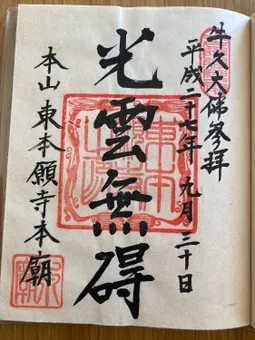 牛久大佛参拜
平成二十七年 九月三十日
光雲無碍
本山 東本願寺本廟